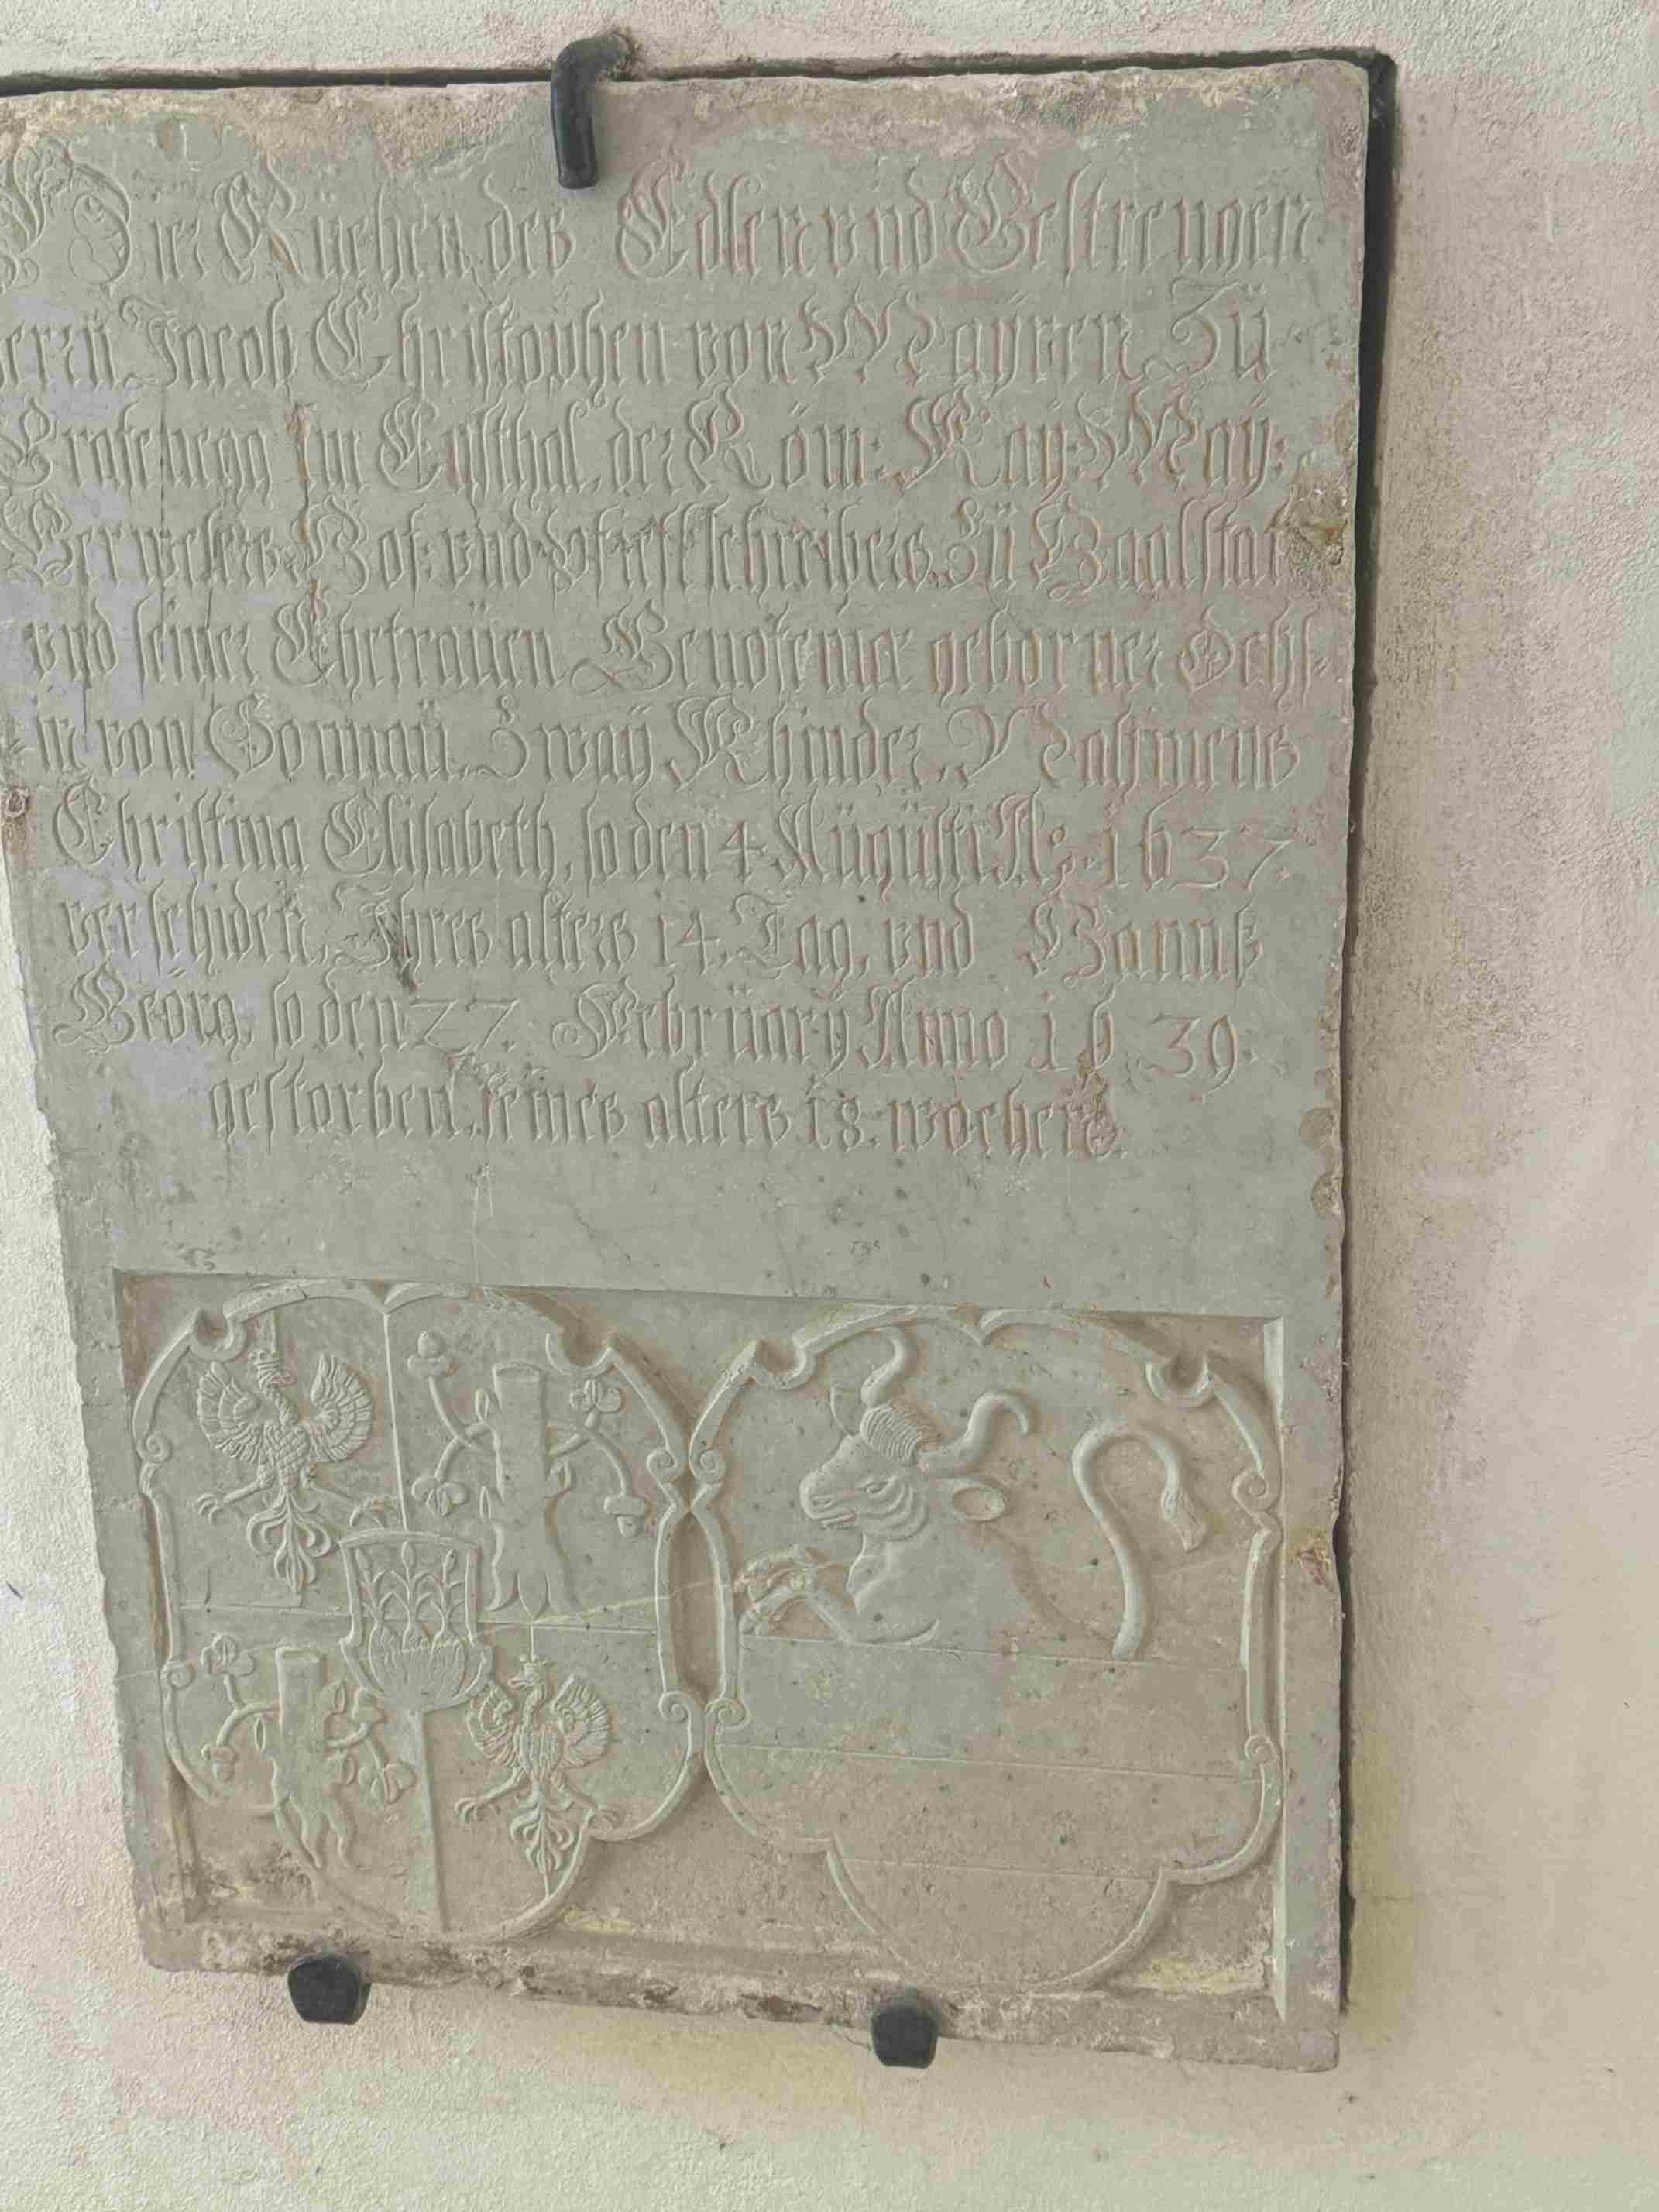 Hier Ruehen des Edlen vnd Gestrengen
Herrn Jacob Christophen von Mayrer Zu
im der Röm: Kay: May:
Verwesers Hof: vnd schreibers Zü Haalstat
vnd seiner Ehefraüen geborner Ochs-
in von Sonnaü, Zway Khinder, Nahmens
Christina Elisabeth, so den 4 Augusti Aº: 1637.
verschiden, Ihres alters 14. Tag, vnd Hannß
Geörg, so den 27. Februäry Anno 1639.
gestorben, seines alters 18. wochen.